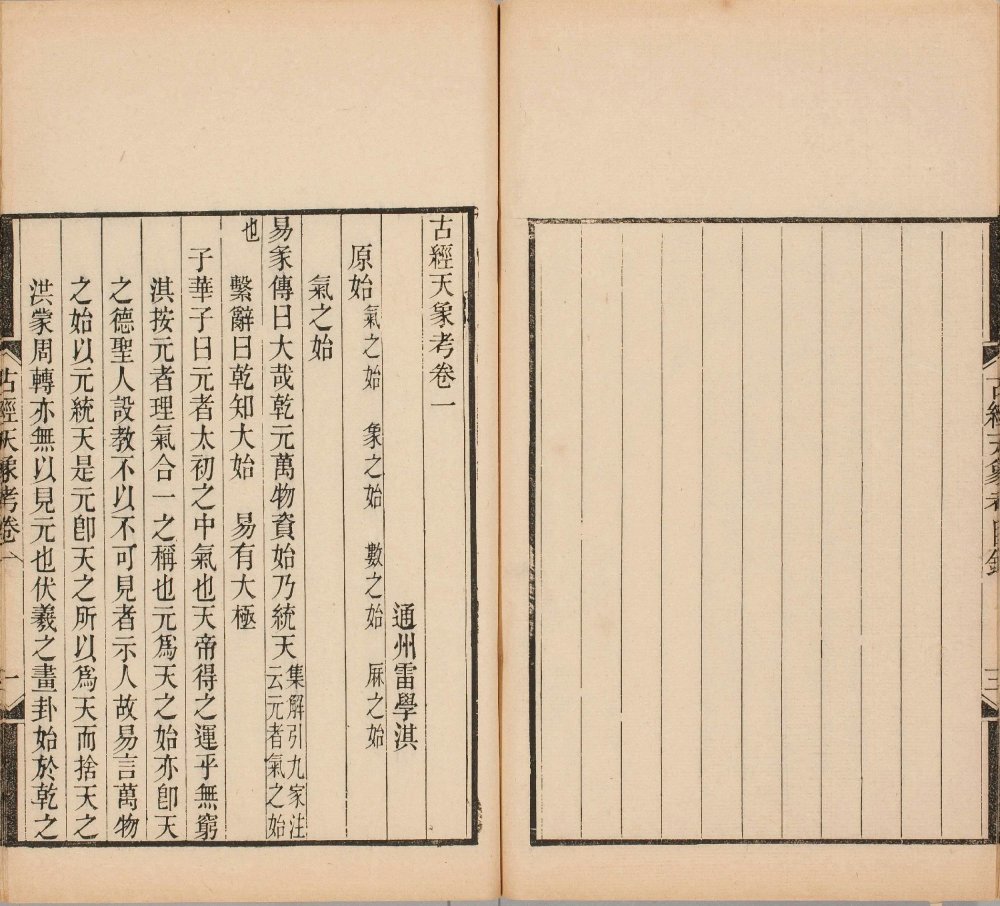 古經天象考卷一
通州雷學淇
原始 氣之始 象之始 數之始 厤之始
氣之始
易彖傳曰大哉乾元萬物資始乃統天集解引九家注
云元者氣之始
也
繫辭曰乾知大始 易有大極
子華子曰元者太初之中氣也天帝得之運乎無窮
淇按元者理氣合一之稱也元爲天之始亦卽天
之德聖人設教不以不可見者示人故易言萬物
之始以元統天是元卽天之所以爲天而捨天之
洪蒙周轉亦無以見元也伏羲之畫卦始於乾之
古經天象考卷一
一
古經天象考目錄
三